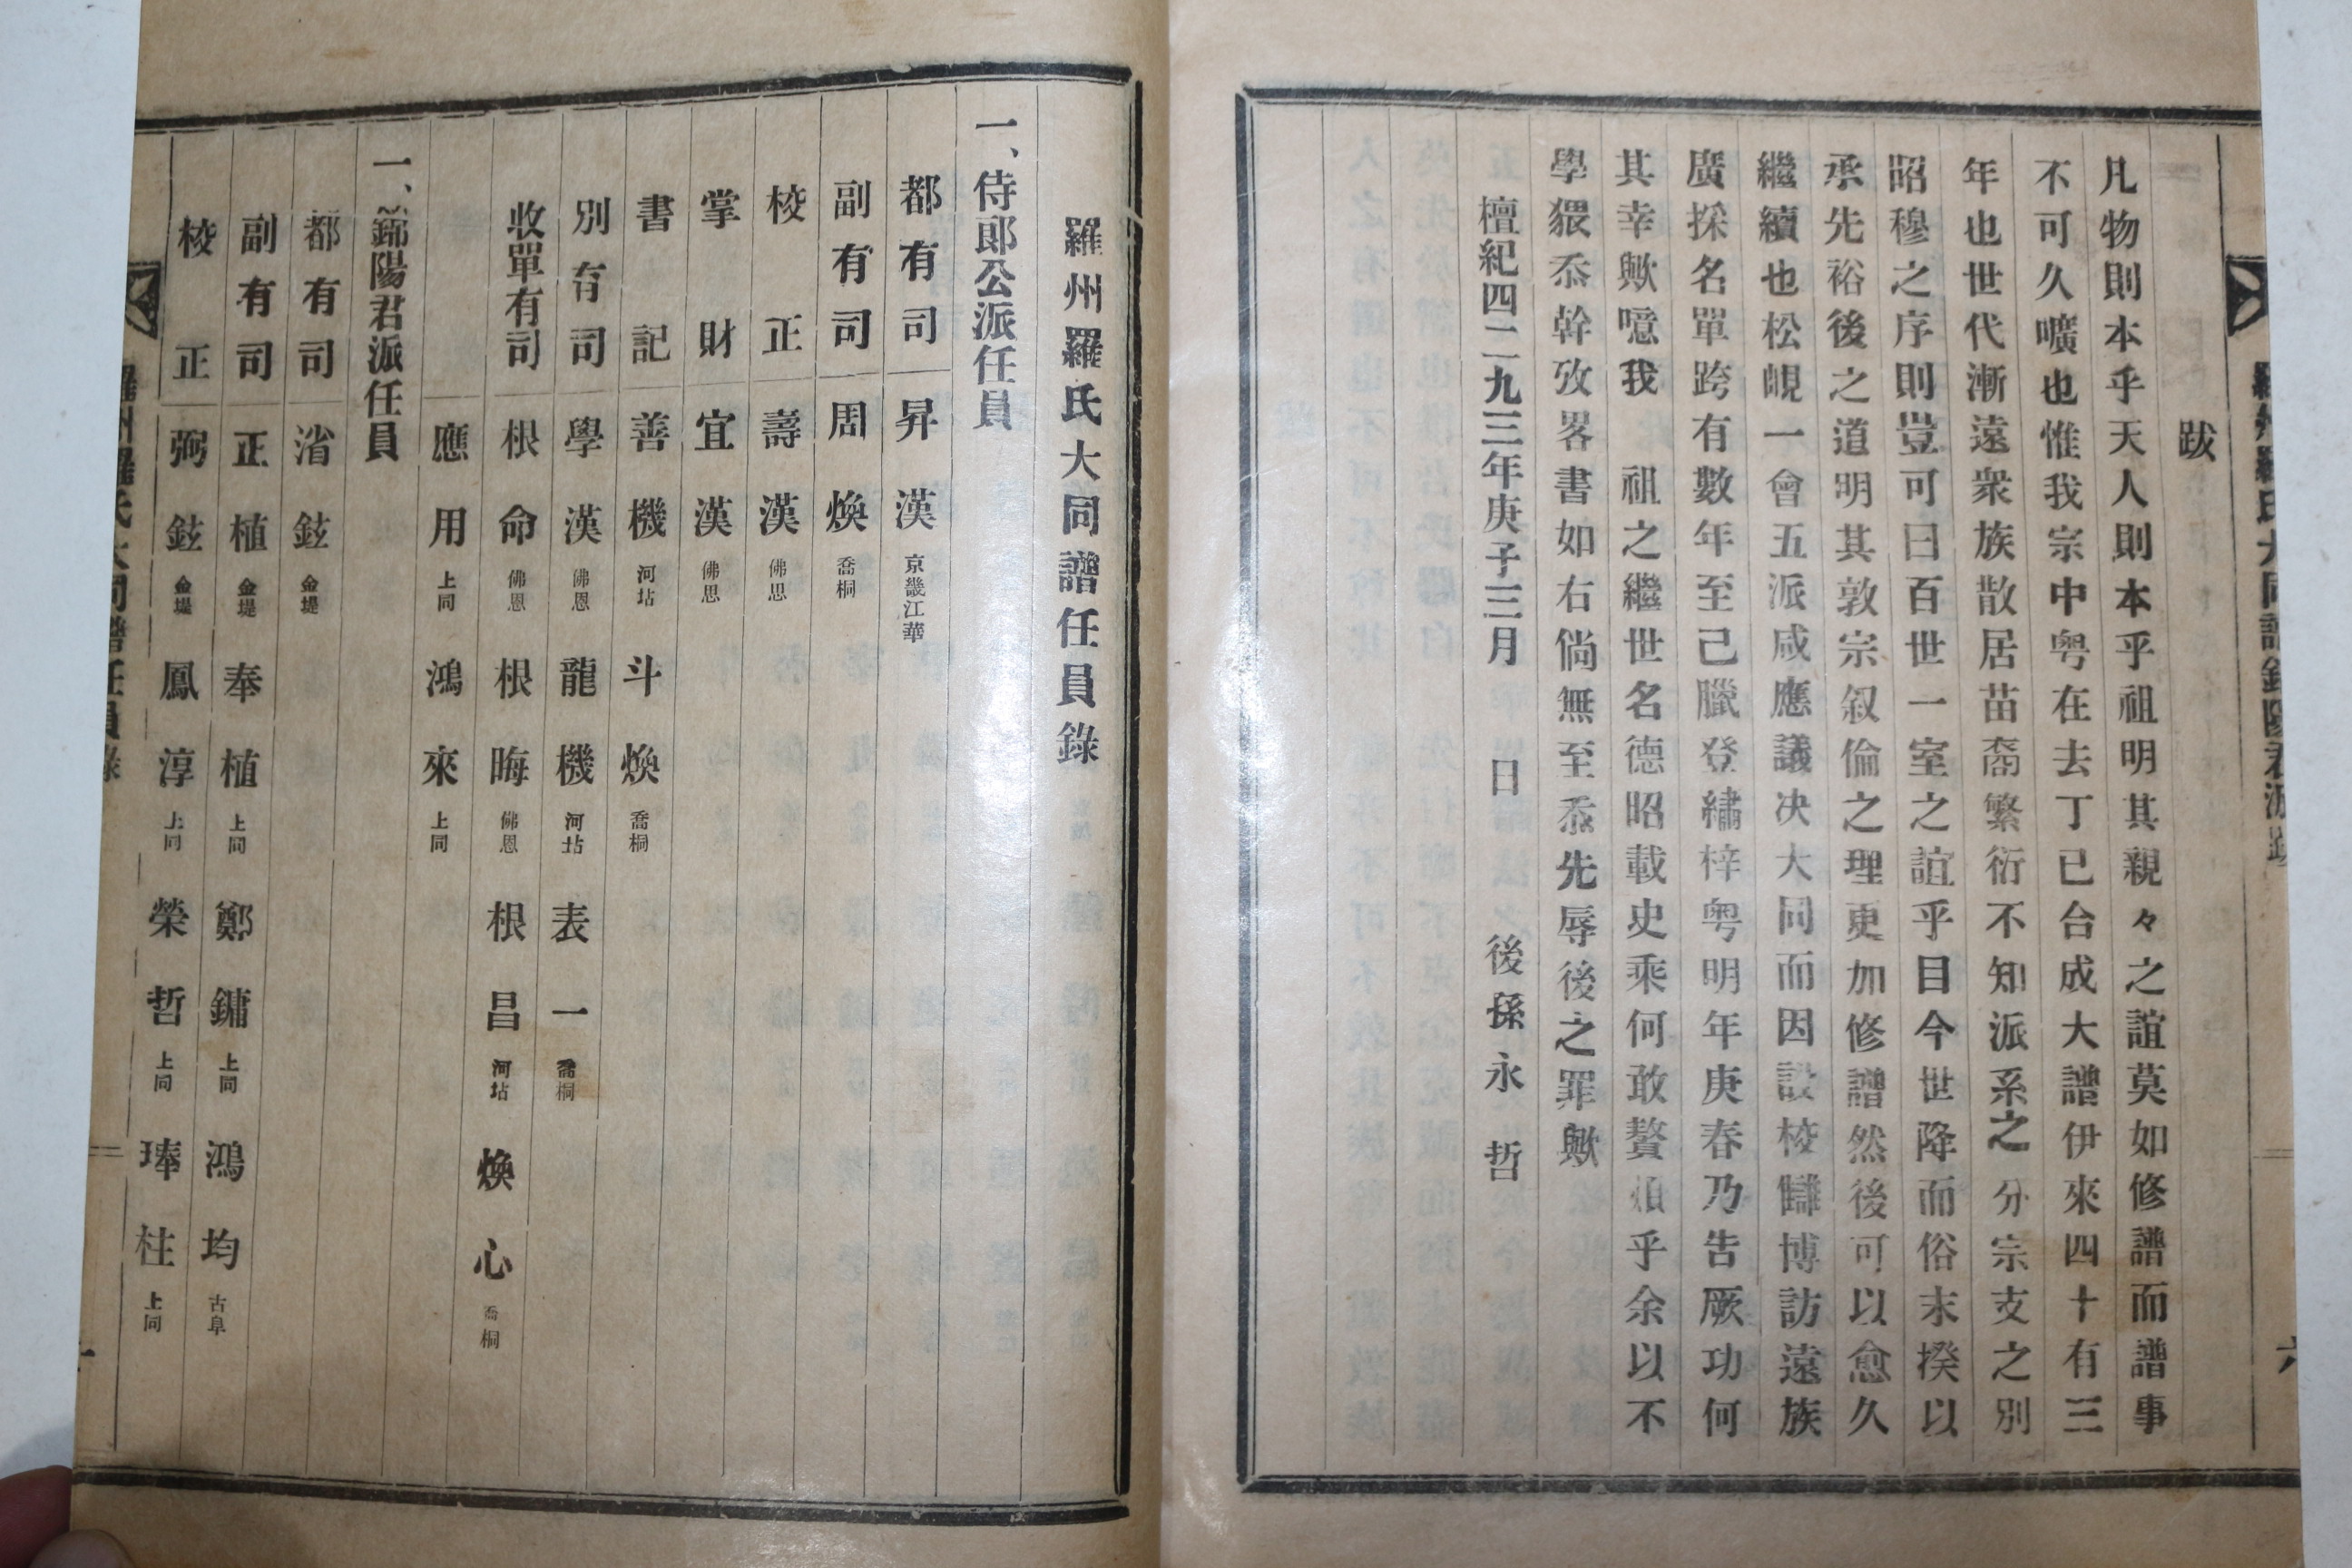 跋
凡物則本乎天人則本乎祖明其親々之誼莫如修譜而譜事
不可久曠也惟我宗中粤在去丁已台成大譜伊來四十有三
年也世代漸遠衆族散居苗裔繁衍不知派系之分宗支之別
昭穆之序則豈可曰百世一室之誼乎目今世降而俗末揆以
承先裕後之道明其敦宗叙倫之理更加修譜然後可以愈久
繼續也松峴一會五派咸應議決大同而因設校讎博訪遠族
廣採名單跨有數年至己臘登繡梓粤明年庚春乃告厥功何
其幸歟噫我 祖之繼世名德昭載史乘何敢贅煩乎余以不
學猥忝幹攷畧書如右倘無至忝先辱後之罪歟
檀紀四二九三年庚子三月 日 後孫永哲
羅州羅氏大同譜任員錄
一、侍郎公派任員
都有司 昇漢 京畿江華
副有司 周煥 喬桐
校正 壽漢 佛思
掌財 宜漢 佛思
書記 善機 河坫 斗煥 喬桐
別有司 學漢 佛恩 龍機 河坫 表一 喬桐
收單有司 根命 佛恩 根晦 佛恩 根昌 河坫 煥心 喬桐
應用 上同 鴻來 上同
一、錦陽君派任員
都有司 渻鉉 金堤
副有司 正植 金堤 奉植 上同 鄭鏞 上同 鴻均 古阜
校正 弼鉉 金堤 鳳淳 上同 榮哲 上同 琫柱 上同
羅州羅氏大同譜任員錄